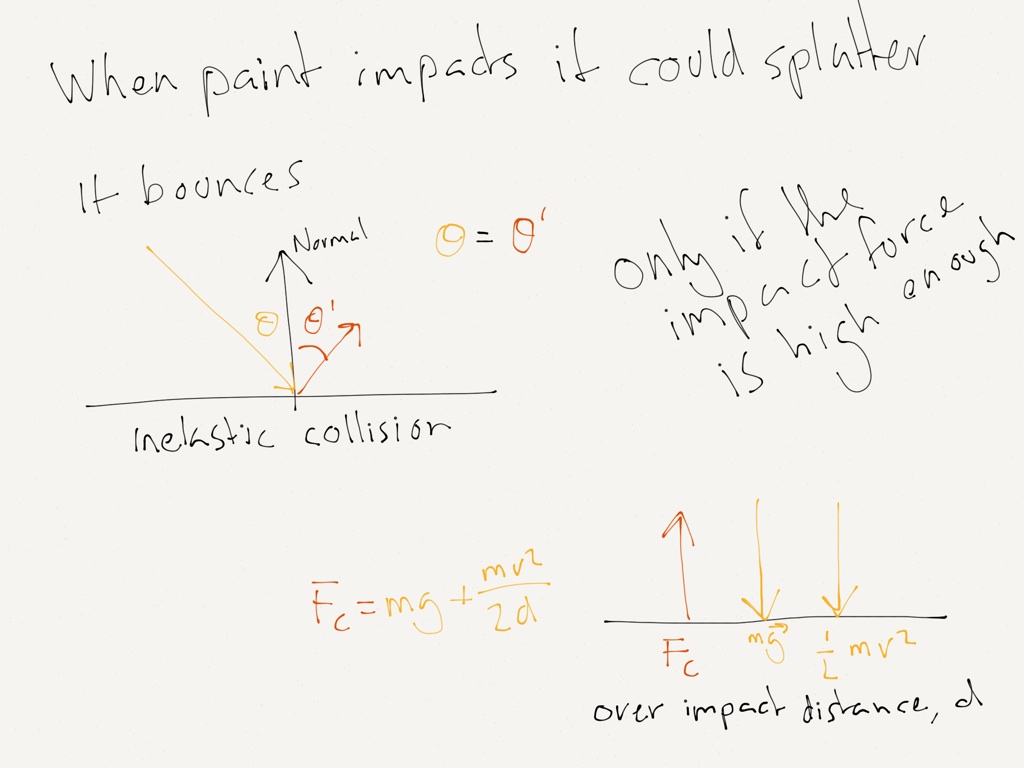 When paint impacts it could splatter
It bounces
Normal
θ = θ'
θ
θ'
Inelastic collision
only if the
impact force
is high enough
F̅c = mg + mv²/2d
Fc
mg⃗
½ mv²
over impact distance, d